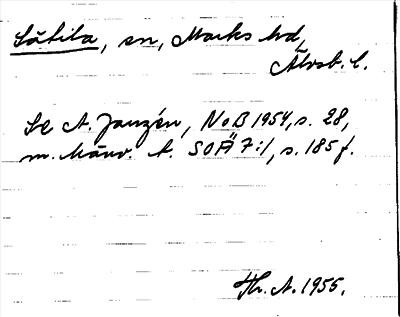 Sätila, sn, Marks hd,
Älvsb. l.
Se A. Janzén, NoB 1954, s. 28,
m. hänv. t. SOÄ 7:1, s. 185 f.
Hr. A. 1955.